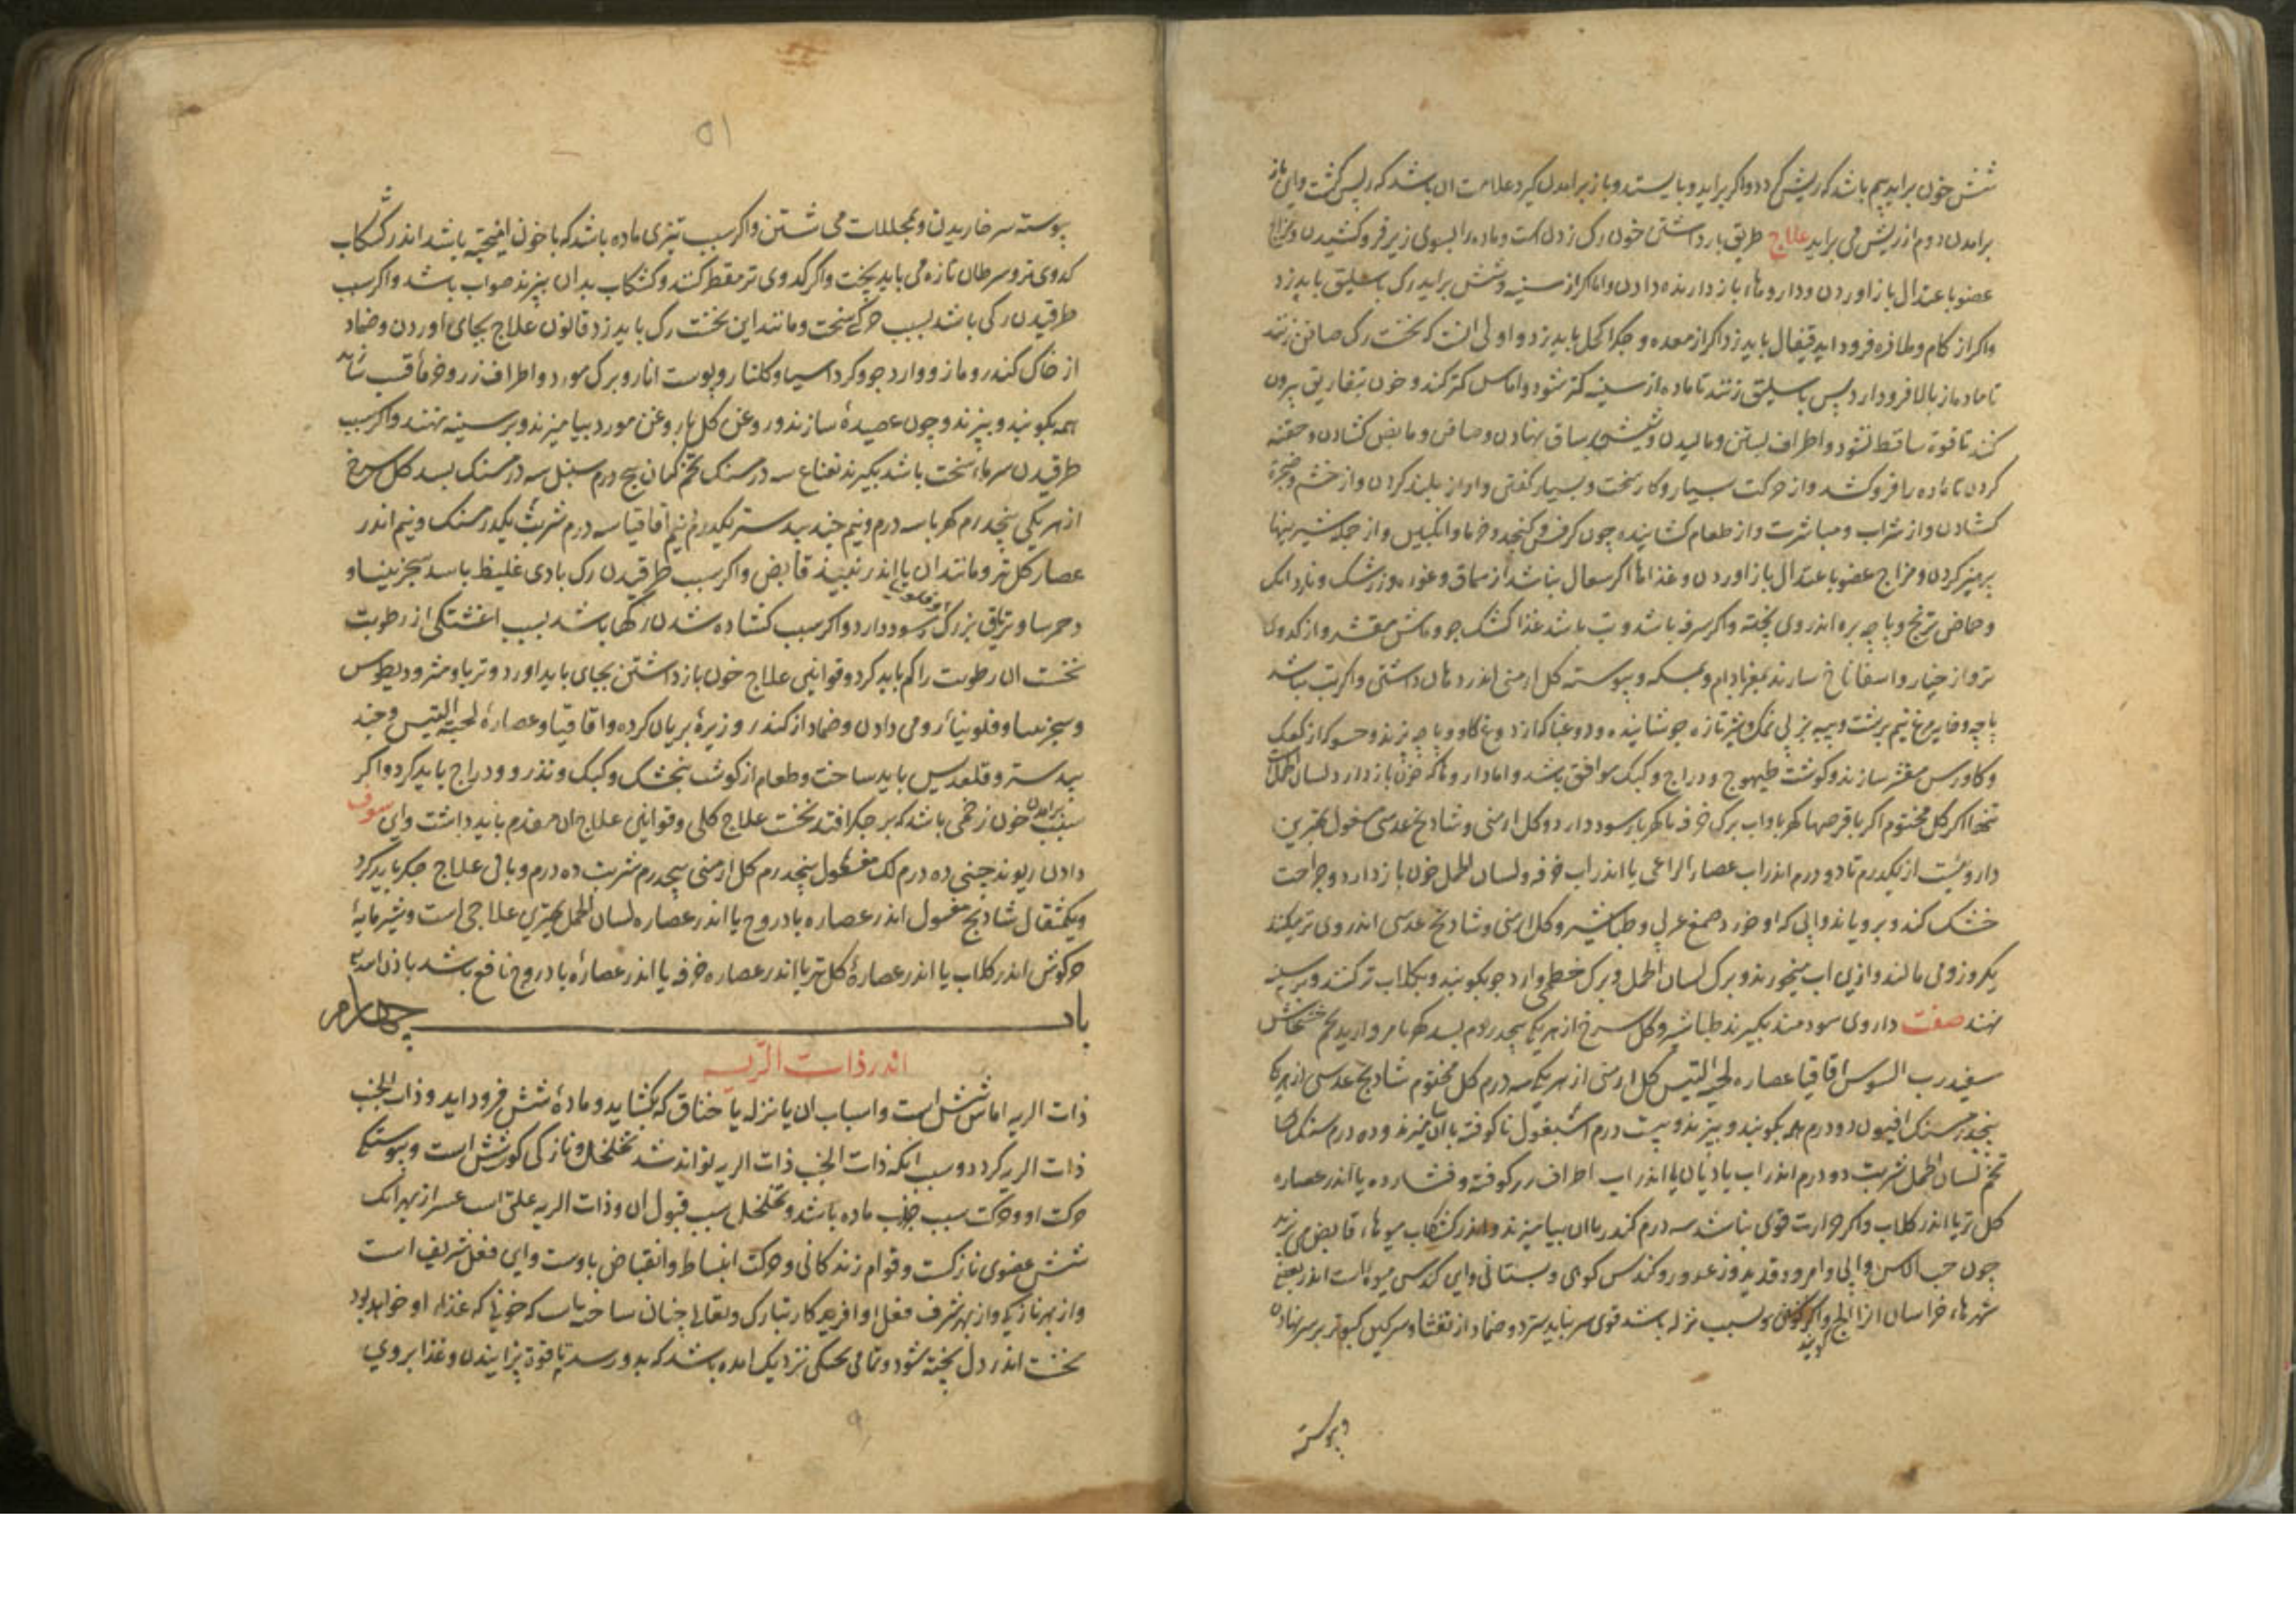 شش خون براید بیم باشد که ریش کردد و اکر براید و بایستد و باز برامدن کیرد علامت ان باشد که ریش کشت و این باز
برامدن دوم از ریش می براید علاج طریق باز داشتن خون رک زدن است و ماده را بسوی زیر فرو کشیدن و مزاج
عضو باعتدال باز اوردن و داروهاء باز دارنده دادن و اما اکر از سینه و شش براید رک باسلیق باید زد
واکر از کام و ملازه فرود اید قیفال باید زد اکر از معده و جکر اکحل باید زد و اولی انست که نخست رک صافن زنند
تا ماده از بالا فرود ارد پس باسلیق زنند تا ماده از سینه کمتر شود و اماس کمتر کند و خون بتفاریق بیرون
کنند تا قوة ساقط نشود و اطراف بستن و مالیدن و شیشه بر ساق نهادن و صافن و مابض کشادن و حقنه
کردن تا ماده را فرو کشد و از حرکت بسیار و کار سخت و بسیار کفتن و اواز بلند کردن و از خشم و ضجرة
کشادن و از شراب و مباشرت و از طعام کشاینده چون کرفس و کنجد و خرما و انکبین و از جمله شیرینیها
پرهیز کردن و مزاج عضو باعتدال باز اوردن و غذاها اکر سعال نباشد از سماق و غوره و زرشک و ناردانک
و حماض ترنج و پاچه بره اندر وی پخته و اکر سرفه باشد و تب باشد غذا کشک جو و ماش مقشر و از کدوی
تر و از خیار و اسفاناخ سازند بمغز بادام و بمسکه و پیوسته کل ارمنی اندر دهان داشتن و اکر تب نباشد
پاچه و خایه مرغ نیم برشت و پنیر بز بی نمک و شیر تازه جوشانیده و دوغبا که از دوغ کاو و پاچه پزند و حسو که از کعک
و کاورس مقشر سازند و کوشت طیهوج و دراج و کبک موافق باشد و اما داروها که خون باز دارد لسان الحمل
تنها اکر کل مختوم اکر با قرصها کهربا و اب برک خرفه با کهربا سود دارد و کل ارمنی و شادنج عدسی مغسول بهترین
داروئیست از یکدرم تا دو درم اندر اب عصا الراعی یا اندر اب خرفه و لسان الحمل خون باز دارد و جراحت
خشک کند و برویاند و ابی که او خورد صمغ عربی و طباشیر و کل ارمنی و شادنج عدسی اندر وی تر میکنند
یکروز و می مالند و ازین اب میخورند و برک لسان الحمل و برک خطمی و ارد جو بکوبند و بکلاب تر کنند و بر سینه
نهند صفت داروی سودمند بکیرند طباشیر و کل سرخ از هر یک پنجدرم بسد کهربا مروارید تخم خشخاش
سفید رب السوس اقاقیا عصاره لحیة التیس کل ارمنی از هر یک سه درم کل مختوم شادنج عدسی از هر یک
پنجدرمسنک افیون دو درم همه بکوبند و بپزند و بیست درم اسبغول ناکوفته با ان بیامیزند و ده درمسنک
تخم لسان الحمل شربت دو درم اندر اب بادیان یا اندر اب اطراف رز کوفته و فشارده یا اندر عصاره
کل تر یا اندر کلاب و اکر حرارت قوی نباشد سه درم کندر با ان بیامیزند و اندر کشکاب میوهاء قابض می پزند
چون حب الاس و ابی و امرود قدید و زعرور و کندس کوهی و بستانی و این کندس میوه است اندر بعضی
شهرهاء خراسان انرا الج کویند و اکر بسبب نزله باشد قوی سر بباید سترد و ضماد از تفشا و سرکین کبوتر بر سر نهادن
وپیوسته
۵۱
پیوسته سر خاریدن و بمحللات می شستن و اکر سبب تیزی ماده باشد که با خون امیخته باشد اندر کشکاب
کدوی تر و سرطان تازه می باید پخت و اکر کدوی تر مقطر کنند و کشکاب بدان بپزند صواب باشد و اکر سبب
طرقیدن رکی باشد بسبب حرکة سخت و مانند این نخست رک باید زد و قانون علاج بجای اوردن و ضماد
از خاک کندر و مازو و ارد جو و کرد اسیا و کلنار و پوست انار و برک مورد و اطراف رز و خرماء قسب
همه بکوبند و بپزند و چون عصیدهٔ سازند و روغن کل یا روغن مورد بیامیزند و بر سینه نهند و اکر سبب
طرقیدن سرماء سخت باشد بکیرند نعناع سه درمسنک تخم کمان پنج درم سنبل سه درمسنک بسد کل سرخ
از هر یکی پنجدرم کهربا سه درم و نیم جند بیدستر یکدرم و نیم اقاقیا سه درم شربت یکدرمسنک و نیم اندر
عصار کل تر و مانند ان یا اندر نبیذ قابض و اکر سبب طرقیدن رک بادی غلیظ باشد سجزینیا و
دحمرثا و تریاق بزرک و فلونیا سود دارد و اکر سبب کشاده شدن رکها باشد بسبب اغشتکی از رطوبت
نخست ان رطوبت را کم باید کرد و قوانین علاج خون باز داشتن بجای باید اورد و تریاق و مثرودیطوس
و سجزنیا و فلونیاء رومی دادن و ضماد از کندر و زیرهٔ بریان کرده و اقاقیا و عصارهٔ لحیة التیس و جند
بیدستر و قلقدیس باید ساخت و طعام از کوشت بنجشک و کبک و تذرو و دراج باید کرد و اکر
سبب برامدن خون زخمی باشد که بر جکر افتد نخست علاج کلی و قوانین علاج ان مقدم باید داشت و این سوف
دادن ریوند چینی ده درم لک مغسول پنجدرم کل ارمنی پنجدرم شربت ده درم و باقی علاج جکر باید کرد
و یکمثقال شادنج مغسول اندر عصاره بادروج یا اندر عصاره لسان الحمل بهترین علاجی است و شیر مایهٔ
خرکوش اندر کلاب یا اندر عصارهٔ کل تر یا اندر عصاره خرفه یا اندر عصارهٔ بادروج نافع باشد باذن الله
باب چهارم
اندر ذات الریه
ذات الریه اماس شش است و اسباب ان یا نزله یا خناق که بکشاید و مادهٔ شش فرود اید و ذات الجنب
ذات الریه کردد و سبب انکه ذات الجنب ذات الریه تواند شد تخلخل و نازکی کوشش است و پیوستکی
حرکت او و حرکت سبب جذب ماده باشد و تخلخل سبب قبول ان و ذات الریه علتی است عسر از بهر انک
شش عضوی نازکست و قوام زندکانی و حرکت انبساط و انقباض باوست و این فعل شریف است
و از بهر نازکی و از بهر شرف فعل او افریدکار تبارک و تعالی چنان ساخته است که خونی که غذاء او خواهد بود
نخست اندر دل پخته شود و تمامی نزدیک امده باشد که بدو رسد تا قوة پزانیدن و غذا بروی
۹